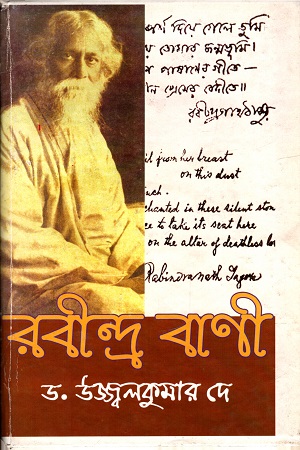 দিয়ে গেলে তুমি
তোমার জন্মভূমি।
পাষাণের গীতে—
প্রেমের বেদীতে॥
রবীন্দ্রনাথ ঠাকুর
from her breast
on this dust
chanted in these silent ston
to take its seat here
on the altar of deathless lov
Rabindranath Tagore
রবীন্দ্র বাণী
ড. উজ্জ্বলকুমার দে